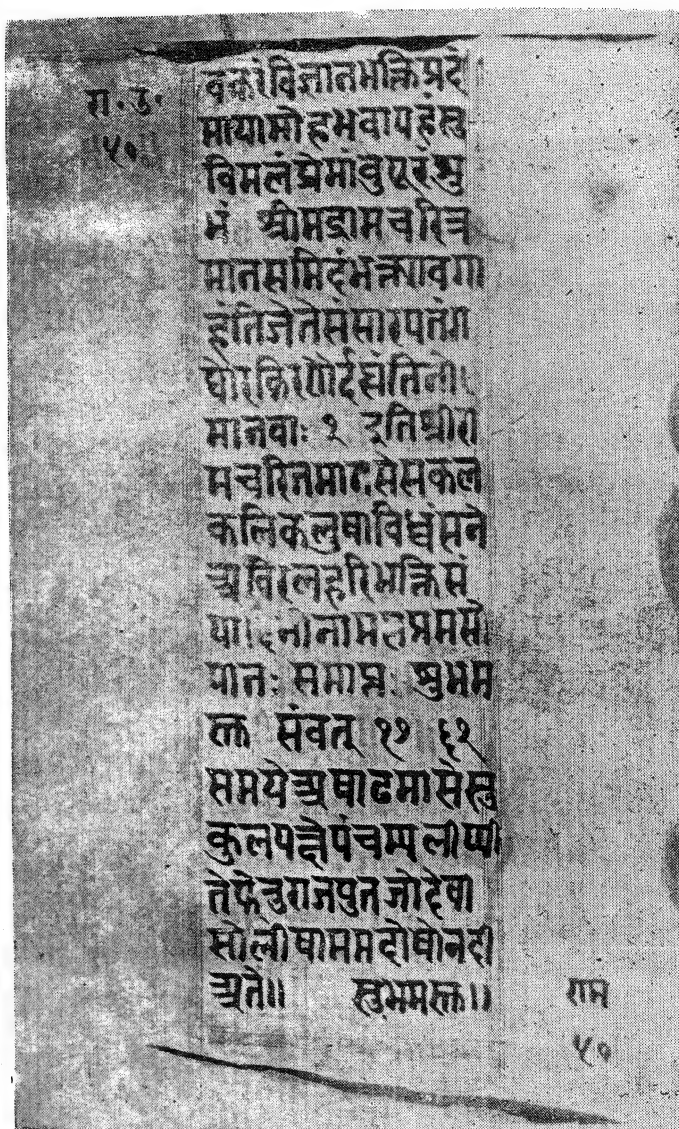 रा॰ उ॰
५०
वकरंविज्ञातभक्तिप्रदं
मायामोहभवापहंसु
विमलंप्रेमांवुपूरंशु
भं श्रीमद्रामचरित्र
मातसमिदंभक्त्यावगा
हंतिजेतेसंसारपतंग
घोरकिरणोर्दह्यंतिनो
मानवाः १ इतिश्रीरा
मचरितमानसेसकल
कलिकलुषाविध्वंसने
अविरलहरिभक्तिसं
नामसप्तमसो
पानः समाप्तः शुभम
स्तु संवत् १७ ६१
समयेअषाढमासेसु
कुलपछेपंचम्यलीप्पी
तेफेतुराजपुतजोदेषा
सोलीषाममदोषोनदी
अते॥ सुभमस्तु॥
राम
५०